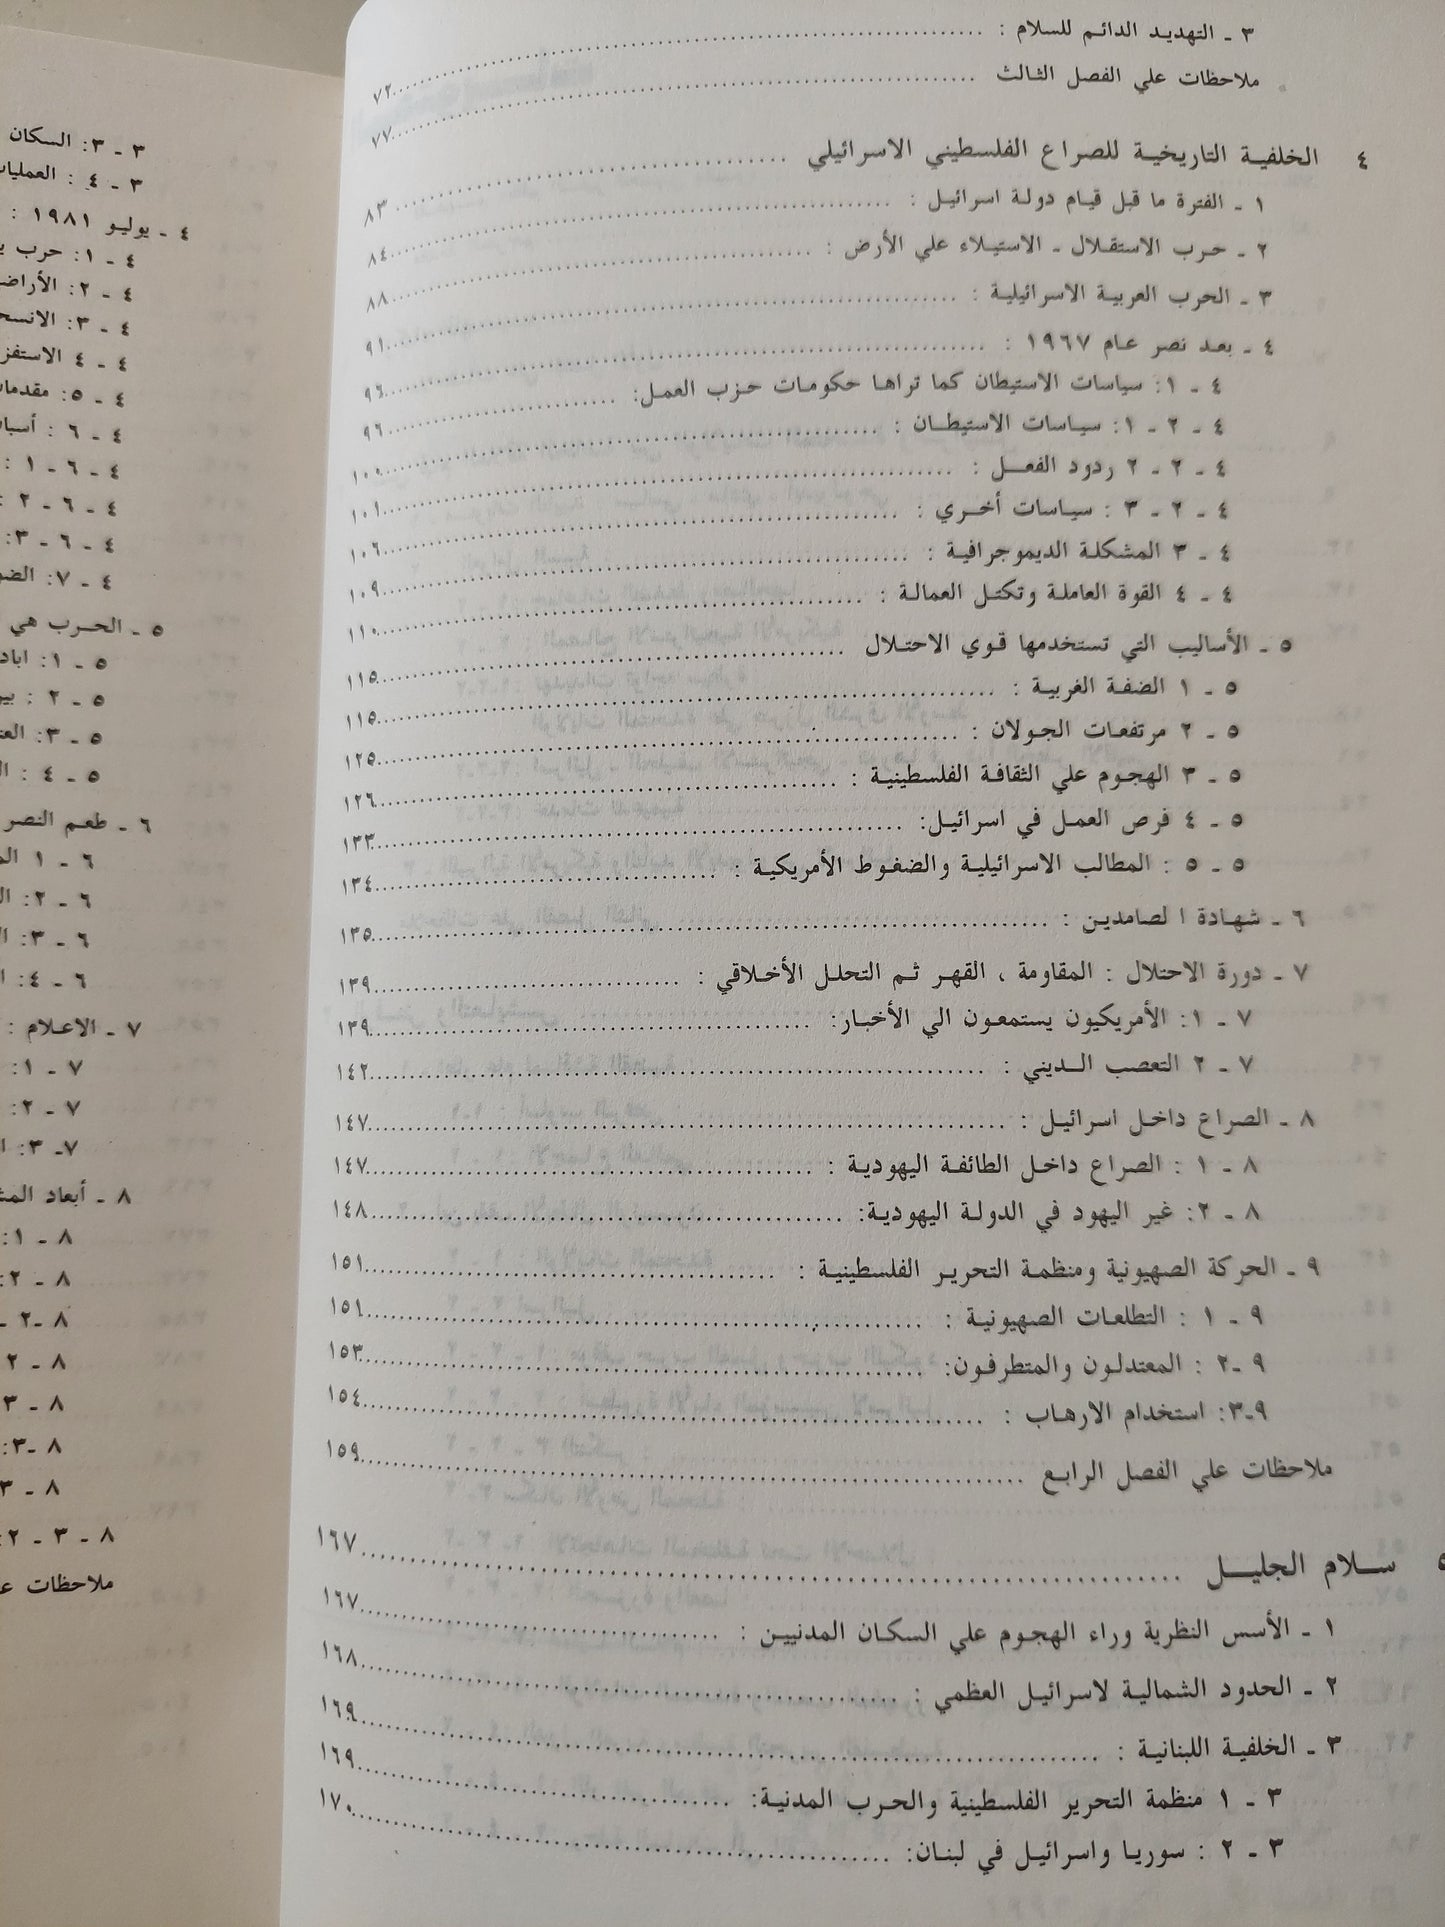 ٣ ـ التهديد الدائم للسلام : ........ ٧٢
ملاحظات علي الفصل الثالث ........ ٧٧
٤ الخلفية التاريخية للصراع الفلسطيني الاسرائيلي ........ ٨٣
١ ـ الفترة ما قبل قيام دولة اسرائيل : ........ ٨٤
٢ ـ حرب الاستقلال ـ الاستيلاء علي الأرض : ........ ٨٨
٣ ـ الحرب العربية الاسرائيلية : ........ ٩١
٤ ـ بعد نصر عام ١٩٦٧ : ........ ٩٦
٤ ـ ١: سياسات الاستيطان كما تراها حكومات حزب العمل: ........ ٩٦
٤ ـ ٢ ـ ١: سياسات الاستيطان : ........ ١٠٠
٤ ـ ٢ ـ ٢ ردود الفعل : ........ ١٠١
٤ ـ ٢ ـ ٣ : سياسات أخري : ........ ١٠٦
٤ ـ ٣ المشكلة الديموجرافية : ........ ١٠٩
٤ ـ ٤ القوة العاملة وتكتل العمالة : ........ ١١٠
٥ ـ الأساليب التي تستخدمها قوي الاحتلال ........ ١١٥
٥ ـ ١ الضفة الغربية : ........ ١١٥
٥ ـ ٢ مرتفعات الجولان : ........ ١٢٥
٥ ـ ٣ الهجوم علي الثقافة الفلسطينية : ........ ١٢٦
٥ ـ ٤ فرص العمل في اسرائيل: ........ ١٣٣
٥ ـ ٥ : المطالب الاسرائيلية والضغوط الأمريكية : ........ ١٣٤
٦ ـ شهادة ا لصامدين : ........ ١٣٥
٧ ـ دورة الاحتلال : المقاومة ، القهر ثم التحلل الأخلاقي : ........ ١٣٩
٧ ـ ١: الأمريكيون يستمعون الي الأخبار: ........ ١٣٩
٧ ـ ٢ التعصب الديني : ........ ١٤٢
٨ ـ الصراع داخل اسرائيل : ........ ١٤٧
٨ ـ ١ : الصراع داخل الطائفة اليهودية : ........ ١٤٧
٨ ـ ٢: غير اليهود في الدولة اليهودية: ........ ١٤٨
٩ ـ الحركة الصهيونية ومنظمة التحرير الفلسطينية : ........ ١٥١
٩ ـ ١ : التطلعات الصهيونية : ........ ١٥١
٩ ـ٢ : المعتدلون والمتطرفون: ........ ١٥٣
٩ـ٣: استخدام الارهاب : ........ ١٥٤
ملاحظات علي الفصل الرابع ........ ١٥٩
٥ سلام الجليل ........ ١٦٧
١ ـ الأسس النظرية وراء الهجوم علي السكان المدنيين : ........ ١٦٧
٢ ـ الحدود الشمالية لاسرائيل العظمي : ........ ١٦٨
٣ ـ الخلفية اللبنانية : ........ ١٦٩
٣ ـ ١ منظمة التحرير الفلسطينية والحرب المدنية: ........ ١٦٩
٣ ـ ٢ : سوريا واسرائيل في لبنان: ........ ١٧٠
٣ ـ ٣: السكان
٣ ـ ٤ :
٤ ـ يوليو ١٩٨١ :
٤ ـ ١: حرب
٤ ـ ٢:
٤ ـ ٣:
٤ ـ ٤
٤ ـ ٥:
٤ ـ ٦ :
٤ ـ ٦ ـ ١ :
٤ ـ ٦ ـ ٢ :
٤ ـ ٦ ـ ٣:
٤ ـ ٧:
٥ ـ الحرب هي
٥ ـ ١:
٥ ـ ٢ :
٥ ـ ٣:
٥ ـ ٤ :
٦ ـ طعم النصر
٦ ـ ١
٦ ـ ٢:
٦ ـ ٣:
٦ ـ ٤:
٧ ـ الاعلام :
٧ ـ ١:
٧ ـ ٢:
٧ـ ٣:
٨ ـ أبعاد
٨ ـ ١:
٨ ـ ٢:
٨ ـ٢ ـ
٨ ـ ٢
٨ ـ ٣
٨ ـ٣:
٨ ـ ٣
٨ ـ ٣ ـ ٢:
ملاحظات